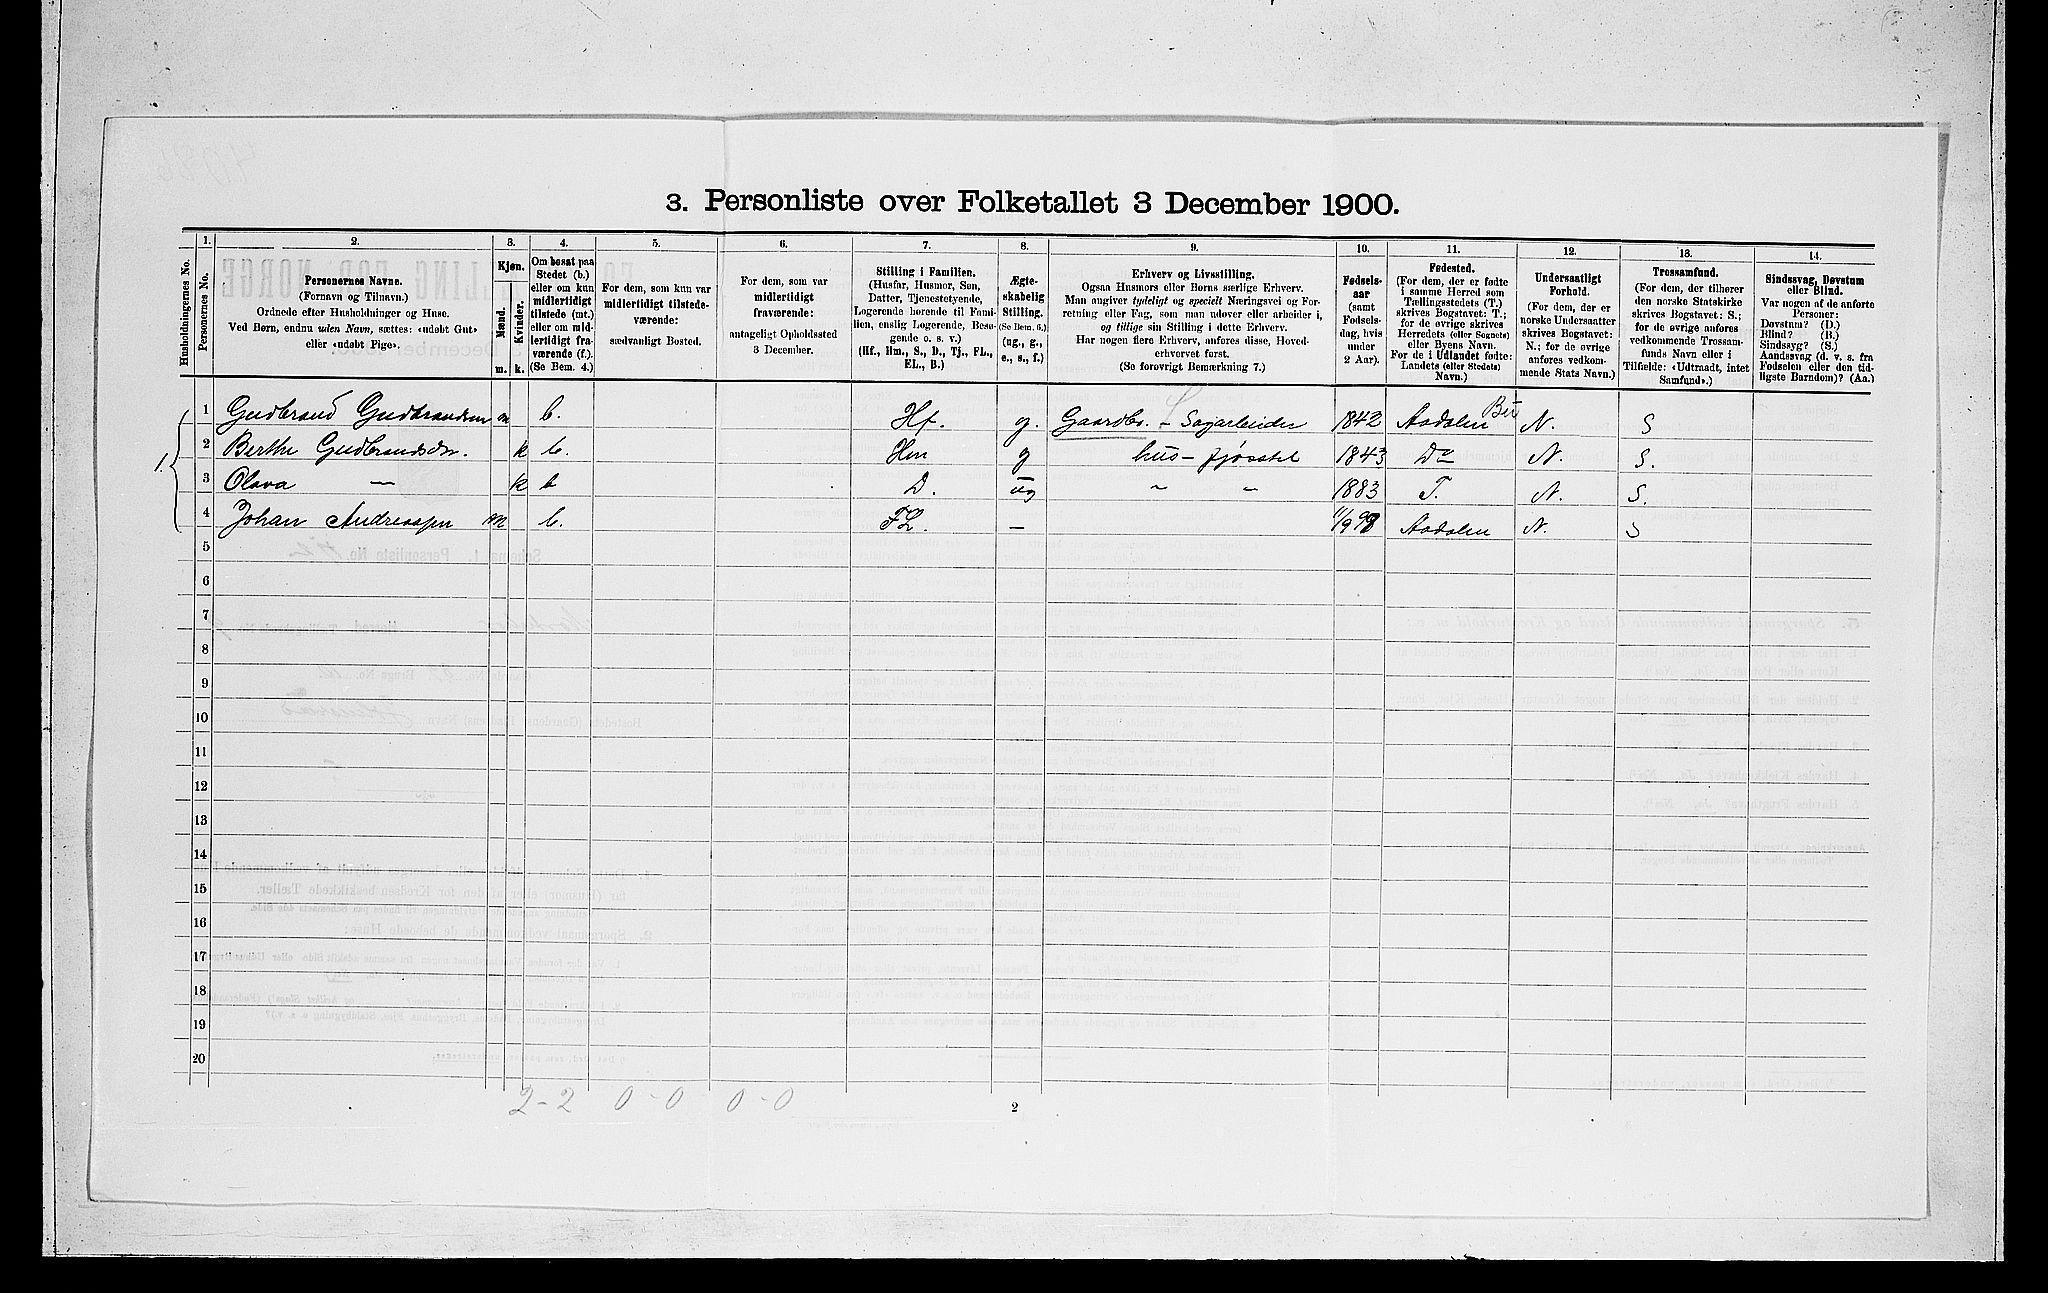 3. Personliste over Folketallet 3 December 1900.
Husholdningernes No.
1. Personernes No.
2. Personernes Navne.
(Fornavn og Tilnavn.)
Ordnede efter Husholdninger og Huse.
Ved Børn, endnu uden Navn, sættes: «udøbt Gut»
eller «udøbt Pige».
3. Kjøn.
Mænd. m.
Kvinder. k.
4. Om bosat paa
Stedet (b.)
eller om kun
midlertidigt
tilstede (mt.)
eller om mid-
lertidigt fra-
værende (f.).
(Se Bem. 4.)
5.
For dem, som kun var
midlertidigt tilstede-
værende:
sædvanligt Bosted.
6.
For dem, som var
midlertidigt
fraværende:
antageligt Opholdssted
3 December.
7.
Stilling i Familien.
(Husfar, Husmor, Søn,
Datter, Tjenestetyende,
Logerende hørende til Fami-
lien, enslig Logerende, Besø-
gende o. s. v.)
(Hf., Hm., S., D., Tj., FL.,
EL., B.)
8.
Ægte-
skabelig
Stilling.
(Se Bem. 6.)
(ug., g.,
e., s., f.)
9.
Erhverv og Livsstilling.
Ogsaa Husmors eller Børns særlige Erhverv.
Man angiver tydeligt og specielt Næringsvei og For-
retning eller Fag, som man udøver eller arbeider i,
og tillige sin Stilling i dette Erhverv.
Har nogen flere Erhverv, anføres disse, Hoved-
erhvervet først.
(Se forøvrigt Bemærkning 7.)
10.
Fødsels-
aar
(samt
Fødsels-
dag, hvis
under
2 Aar).
11.
Fødested.
(For dem, der er fødte
i samme Herred som
Tællingsstedets (T.)
skrives Bogstavet: T.;
for de øvrige skrives
Herredets (eller Sognets)
eller Byens Navn.
For de i Udlandet fødte:
Landets (eller Stedets)
Navn.)
12.
Undersaatligt
Forhold.
(For dem, der er
norske Undersaatter
skrives Bogstavet:
N.; for de øvrige
anføres vedkom-
mende Stats Navn.)
13.
Trossamfund.
(For dem, der tilhører
den norske Statskirke
skrives Bogstavet: S.;
for de øvrige anføres
vedkommende Trossam-
funds Navn eller i
Tilfælde: «Udtraadt, intet
Samfund».)
14.
Sindssvag, Døvstum
eller Blind.
Var nogen af de anførte
Personer:
Døvstum? (D.)
Blind? (B.)
Sindssyg? (S.)
Aandssvag (d. v. s. fra
Fødselen eller den tid-
ligste Barndom)? (Aa.)
1.
1 Gudbrand Gudbrandsen m b. Hf. g. Gaardbr. - Sagarbeider 1842 Aadalen N. S
2 Berthe Gudbrandsdr. k b. Hm g hus- fjøsstel 1843 Do N. S.
3 Olava — k b D. ug " " 1883 T. N. S.
4 Johan Andreassen m b. FL. — 11/9 98 Aadalen N. S
5
6
7
8
9
10
11
12
13
14
15
16
17
18
19
20
2-2 0-0 0-0
2